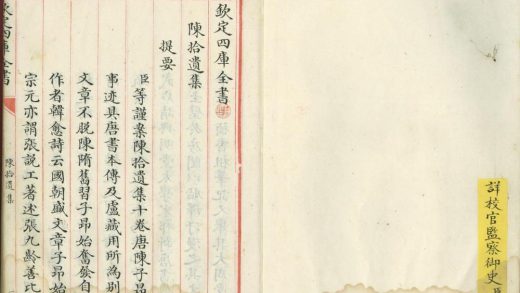 詳校官監察御史臣
欽定四庫全書
陳拾遺集
提要
臣等謹案陳拾遺集十卷唐陳子昂
事迹具唐書本傳及盧藏用所為別
文章不脫陳隋舊習子昂始奮發自
作者韓愈詩云國朝盛文章子昂始
宗元亦謂張說工著述張九齡善比
欽定四庫全書
陳拾遺集